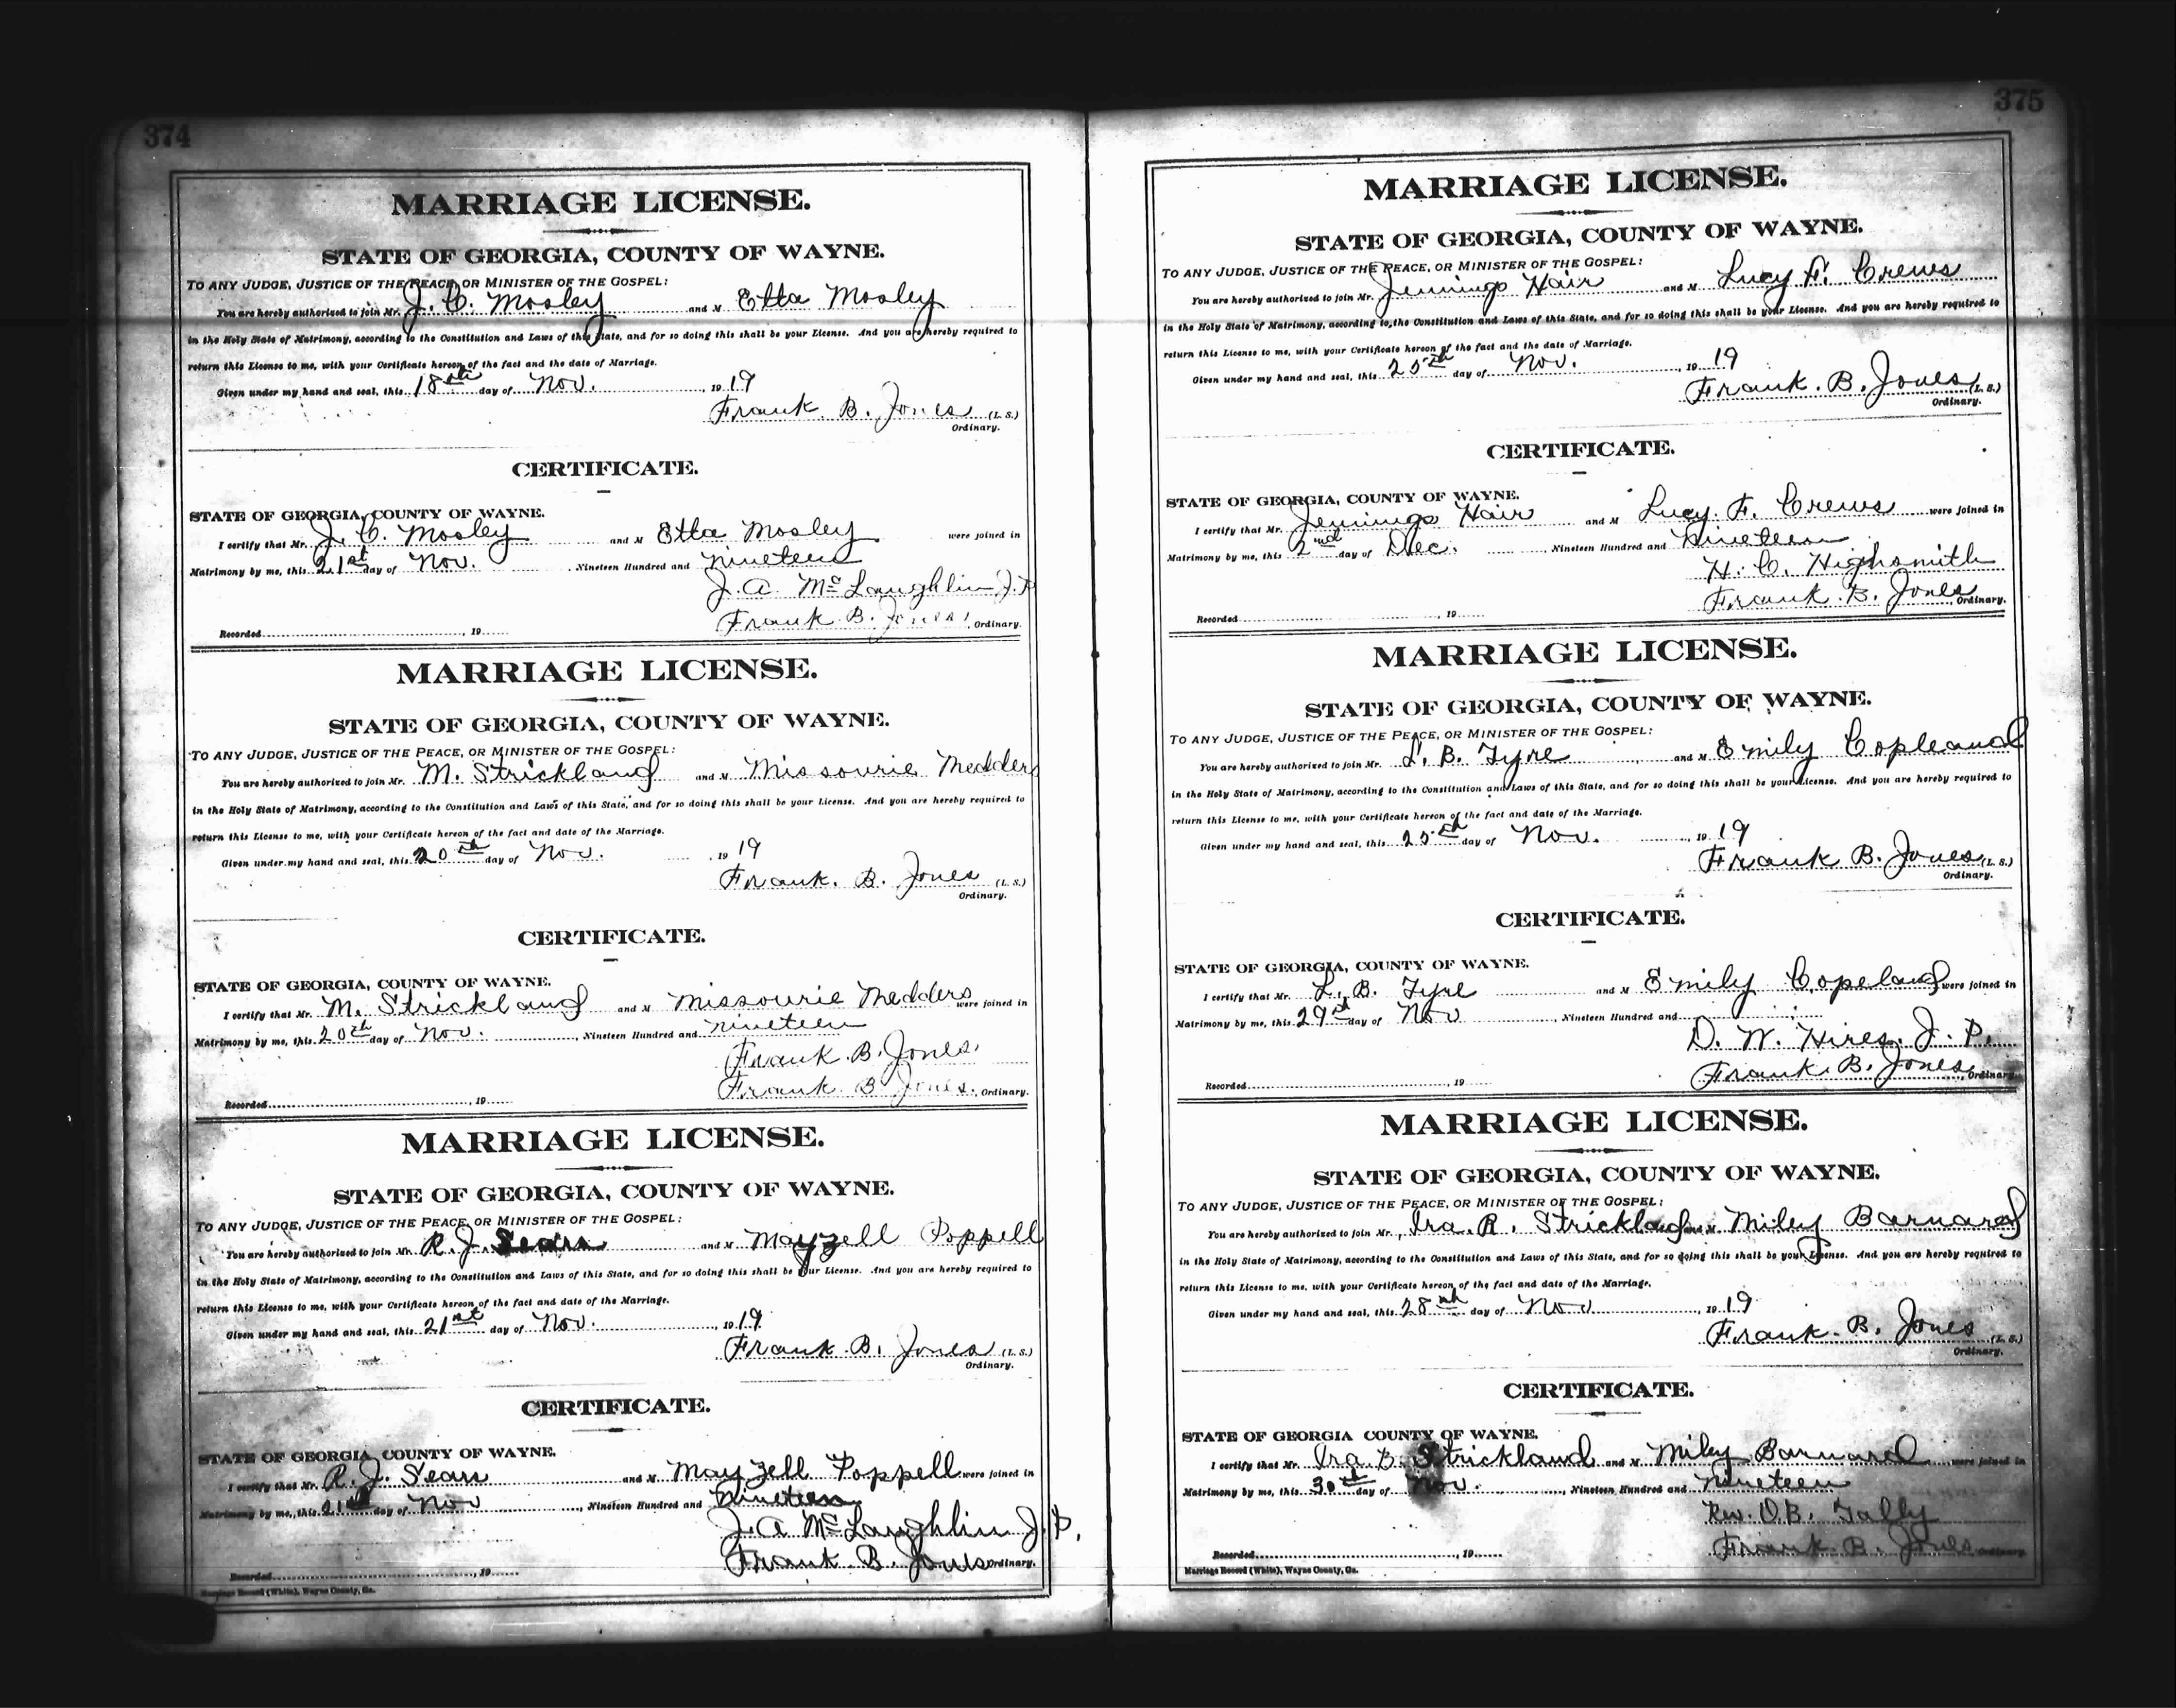 374
MARRIAGE LICENSE.
STATE OF GEORGIA, COUNTY OF WAYNE.
TO ANY JUDGE, JUSTICE OF THE PEACE, OR MINISTER OF THE GOSPEL:
You are hereby authorized to join Mr. J. C. Mosley and M Etta Mosley
in the Holy State of Matrimony, according to the Constitution and Laws of this State, and for so doing this shall be your License. And you are hereby required to
return this License to me, with your Certificate hereon of the fact and the date of Marriage.
Given under my hand and seal, this 18th day of Nov. , 1919
Frank. B. Jones (L. S.)
Ordinary.
CERTIFICATE.
STATE OF GEORGIA, COUNTY OF WAYNE.
I certify that Mr. J. C. Mosley and M Etta Mosley were joined in
Matrimony by me, this 21st day of Nov. , Nineteen Hundred and nineteen
J. A. McLaughlin J. P.
Frank B. Jones , Ordinary.
Recorded , 19
MARRIAGE LICENSE.
STATE OF GEORGIA, COUNTY OF WAYNE.
TO ANY JUDGE, JUSTICE OF THE PEACE, OR MINISTER OF THE GOSPEL:
You are hereby authorized to join Mr. M. Strickland and M Missourie Medders
in the Holy State of Matrimony, according to the Constitution and Laws of this State, and for so doing this shall be your License. And you are hereby required to
return this License to me, with your Certificate hereon of the fact and date of the Marriage.
Given under my hand and seal, this 20th day of Nov. , 1919
Frank. B. Jones (L. S.)
Ordinary.
CERTIFICATE.
STATE OF GEORGIA, COUNTY OF WAYNE.
I certify that Mr. M. Strickland and M Missourie Medders were joined in
Matrimony by me, this 20th day of Nov. , Nineteen Hundred and nineteen
Frank B. Jones.
Frank. B. Jones. , Ordinary.
Recorded , 19
MARRIAGE LICENSE.
STATE OF GEORGIA, COUNTY OF WAYNE.
TO ANY JUDGE, JUSTICE OF THE PEACE, OR MINISTER OF THE GOSPEL:
You are hereby authorized to join Mr. R. J. Sears and M Mayzell Poppell
in the Holy State of Matrimony, according to the Constitution and Laws of this State, and for so doing this shall be your License. And you are hereby required to
return this License to me, with your Certificate hereon of the fact and date of the Marriage.
Given under my hand and seal, this 21st day of Nov. , 1919
Frank. B. Jones (L. S.)
Ordinary.
CERTIFICATE.
STATE OF GEORGIA, COUNTY OF WAYNE.
I certify that Mr. R. J. Sears and M Mayzell Poppell were joined in
Matrimony by me, this 21st day of Nov , Nineteen Hundred and nineteen
J. A McLaughlin J. P.
Frank B. Jones Ordinary.
Recorded , 19
Marriage Record (White), Wayne County, Ga.
375
MARRIAGE LICENSE.
STATE OF GEORGIA, COUNTY OF WAYNE.
TO ANY JUDGE, JUSTICE OF THE PEACE, OR MINISTER OF THE GOSPEL:
You are hereby authorized to join Mr. Jennings Hair and M Lucy F. Crews
in the Holy State of Matrimony, according to the Constitution and Laws of this State, and for so doing this shall be your License. And you are hereby required to
return this License to me, with your Certificate hereon of the fact and the date of Marriage.
Given under my hand and seal, this 25th day of Nov. , 1919
Frank. B. Jones (L. S.)
Ordinary.
CERTIFICATE.
STATE OF GEORGIA, COUNTY OF WAYNE.
I certify that Mr. Jennings Hair and M Lucy. F. Crews were joined in
Matrimony by me, this 2nd day of Dec. , Nineteen Hundred and Nineteen
H. C. Highsmith
Frank. B. Jones , Ordinary.
Recorded , 19
MARRIAGE LICENSE.
STATE OF GEORGIA, COUNTY OF WAYNE.
TO ANY JUDGE, JUSTICE OF THE PEACE, OR MINISTER OF THE GOSPEL:
You are hereby authorized to join Mr. L. B. Tyre , and M Emily Copleand
in the Holy State of Matrimony, according to the Constitution and Laws of this State, and for so doing this shall be your License. And you are hereby required to
return this License to me, with your Certificate hereon of the fact and date of the Marriage.
Given under my hand and seal, this 25th day of Nov. , 1919
Frank B. Jones (L. S.)
Ordinary.
CERTIFICATE.
STATE OF GEORGIA, COUNTY OF WAYNE.
I certify that Mr. L. B. Tyre and M Emily Copeland were joined in
Matrimony by me, this 29 day of Nov , Nineteen Hundred and
D. W. Hires. J. P.
Frank. B. Jones , Ordinary
Recorded , 19
MARRIAGE LICENSE.
STATE OF GEORGIA, COUNTY OF WAYNE.
TO ANY JUDGE, JUSTICE OF THE PEACE, OR MINISTER OF THE GOSPEL:
You are hereby authorized to join Mr. Ira. R. Strickland and M Miley Barnard
in the Holy State of Matrimony, according to the Constitution and Laws of this State, and for so doing this shall be your License. And you are hereby required to
return this License to me, with your Certificate hereon of the fact and date of the Marriage.
Given under my hand and seal, this 28th day of Nov , 1919
Frank. B. Jones (L. S.)
Ordinary.
CERTIFICATE.
STATE OF GEORGIA COUNTY OF WAYNE.
I certify that Mr. Ira B. Strickland and M Miley Barnard were joined in
Matrimony by me, this 30th day of Nov. , Nineteen Hundred and Nineteen
Rev. O. B. Tally
Frank. B. Jones Ordinary.
Recorded , 19
Marriage Record (White), Wayne County, Ga.